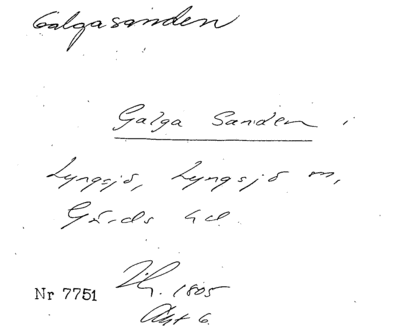 Galgasanden
Galga Sanden i
Lyngsjö, Lyngsjö m,
Gärds hd.
1805
Nr 7751
Akt 6